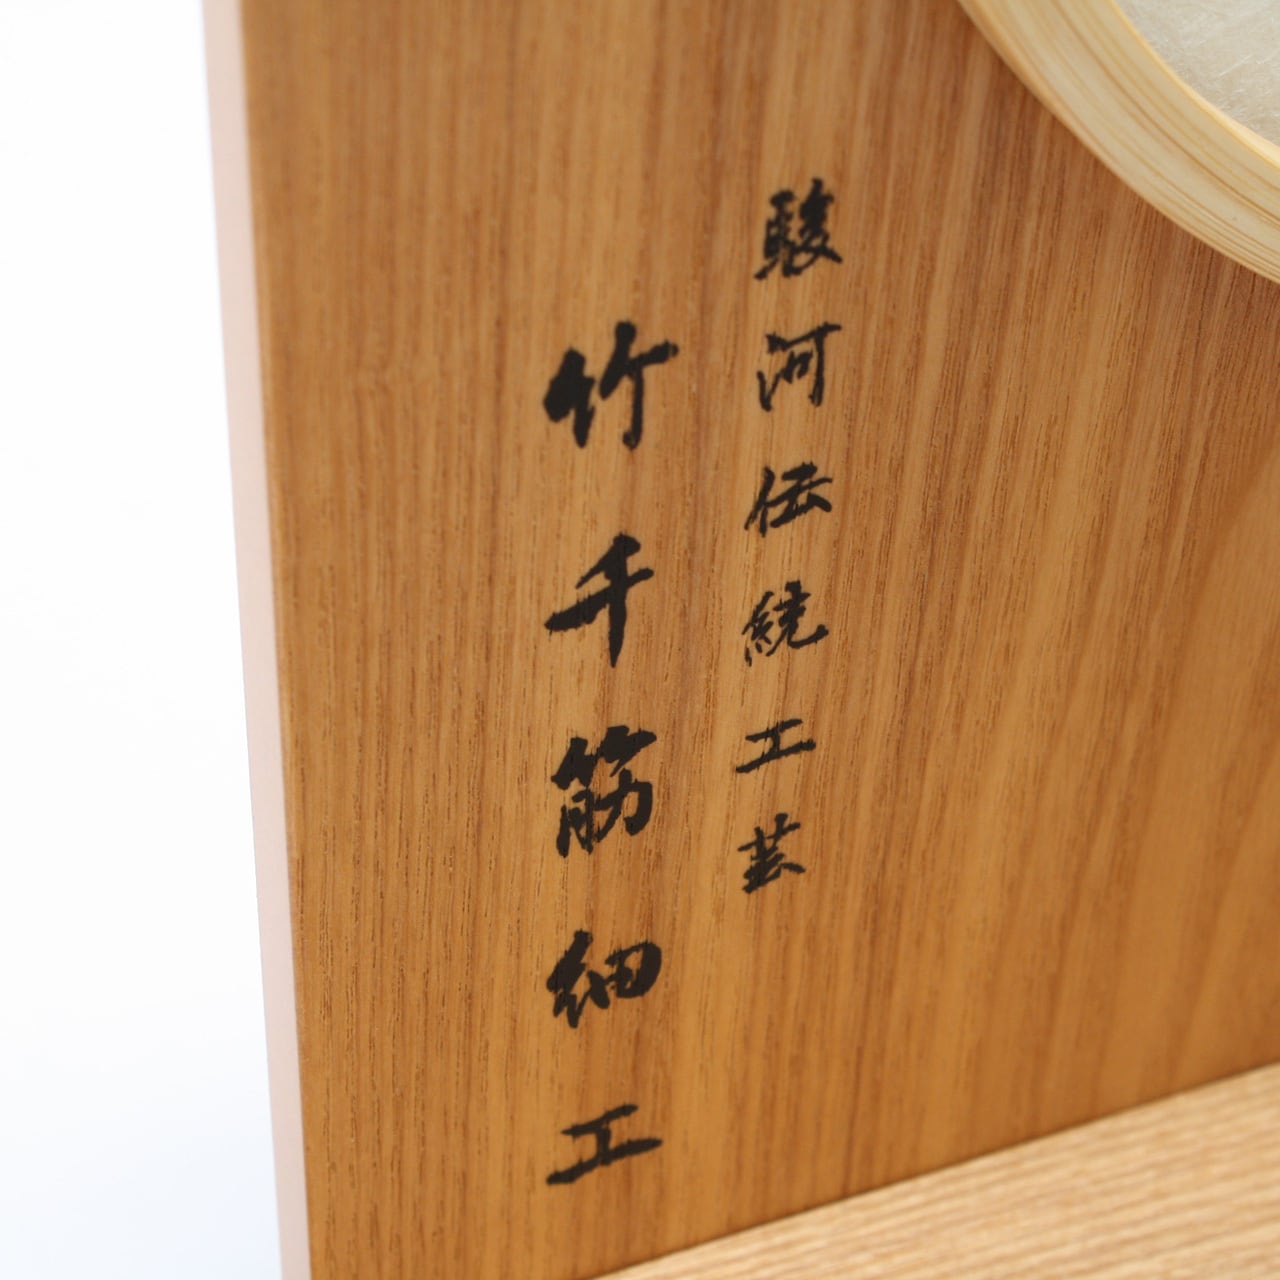 駿河伝統工芸
竹千筋細工